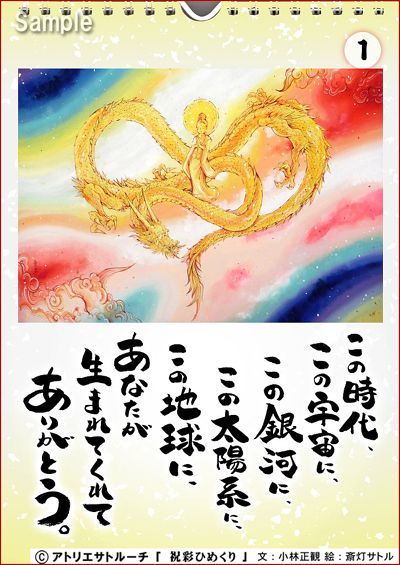 Sample
1
この時代、
この宇宙に、
この銀河に、
この太陽系に、
この地球に、
あなたが
生まれてくれて
ありがとう。
©アトリエサトルーチ『 祝彩ひめくり 』 文：小林正観 絵：斎灯サトル